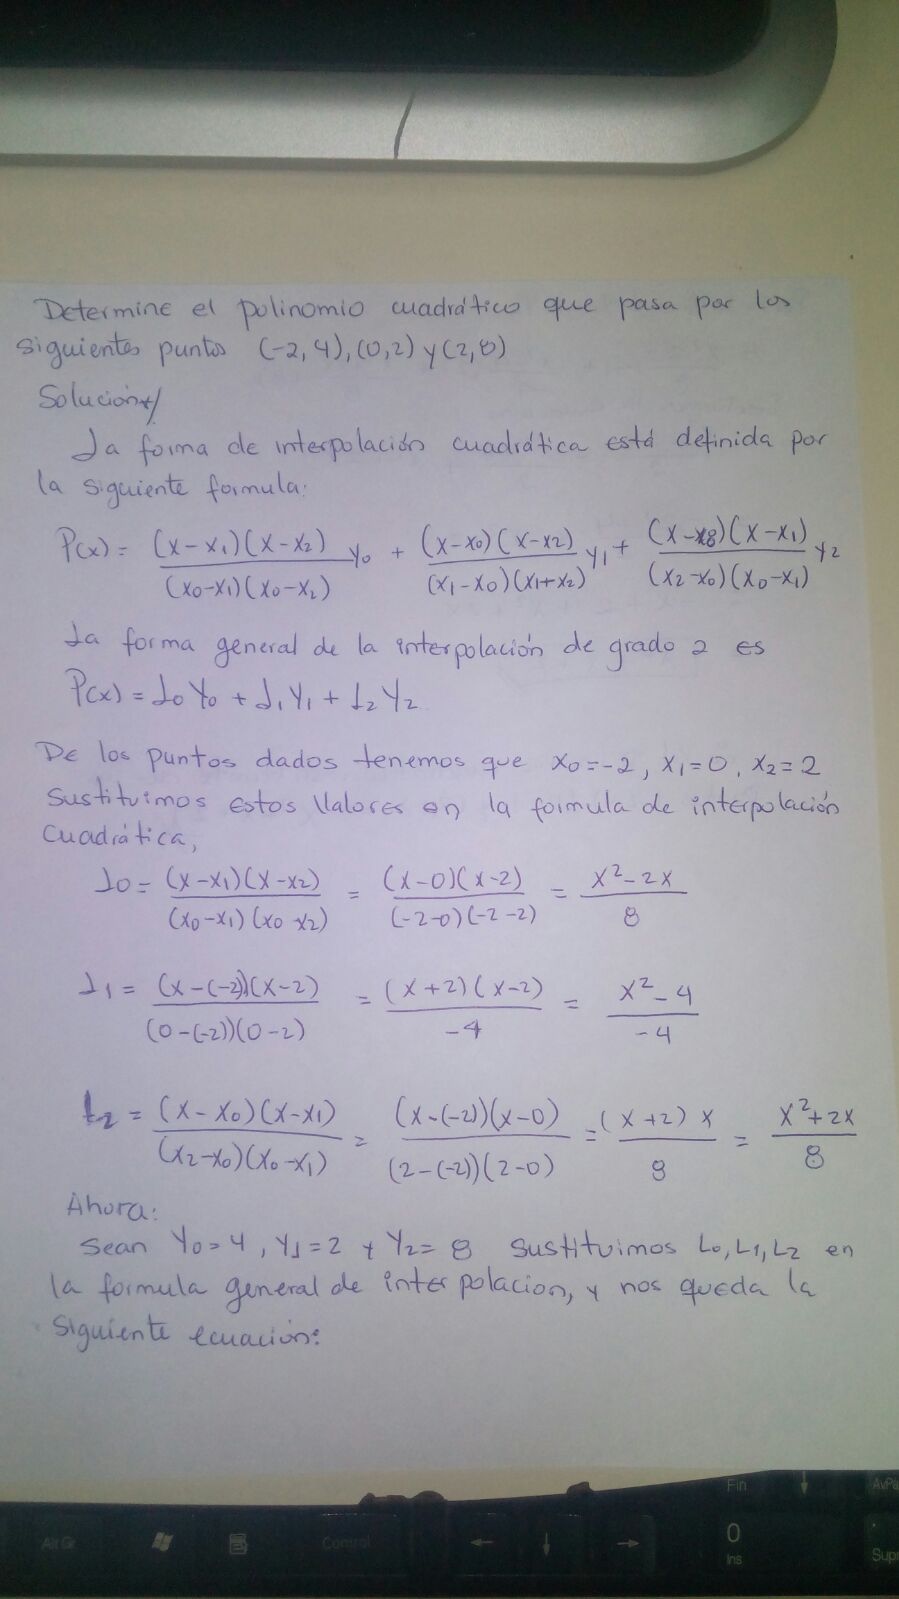 Determine el polinomio cuadrático que pasa por los
siguientes puntos (-2,4), (0,2) y (2,8)
Solución/
La forma de interpolación cuadrática está definida por
la siguiente formula:
P(x) = (x-x₁)(x-x₂)/(x₀-x₁)(x₀-x₂) y₀ + (x-x₀)(x-x2)/(x₁-x₀)(x₁+x₂) y₁ + (x-x8)(x-x₁)/(x₂-x₀)(x₀-x₁) y₂
La forma general de la interpolación de grado 2 es
P(x) = L₀Y₀ + L₁Y₁ + L₂Y₂
De los puntos dados tenemos que x₀=-2, x₁=0, x₂=2
Sustituimos estos Valores en la formula de interpolación
Cuadrática,
L0 = (x-x₁)(x-x₂)/(x₀-x₁)(x₀-x₂) = (x-0)(x-2)/(-2-0)(-2-2) = x²-2x/8
L₁ = (x-(-2))(x-2)/(0-(-2))(0-2) = (x+2)(x-2)/-4 = x²-4/-4
L₂ = (x-x₀)(x-x₁)/(x₂-x₀)(x₀-x₁) = (x-(-2))(x-0)/(2-(-2))(2-0) = (x+2)x/8 = x²+2x/8
Ahora:
Sean Y₀=4, Y₁=2 y Y₂=8 Sustituimos L₀,L₁,L₂ en
la formula general de interpolacion, y nos queda la
Siguiente ecuación:
Fin
↓
AvPá
Alt Gr
Control
←
↓
→
0
Ins
.
Supr